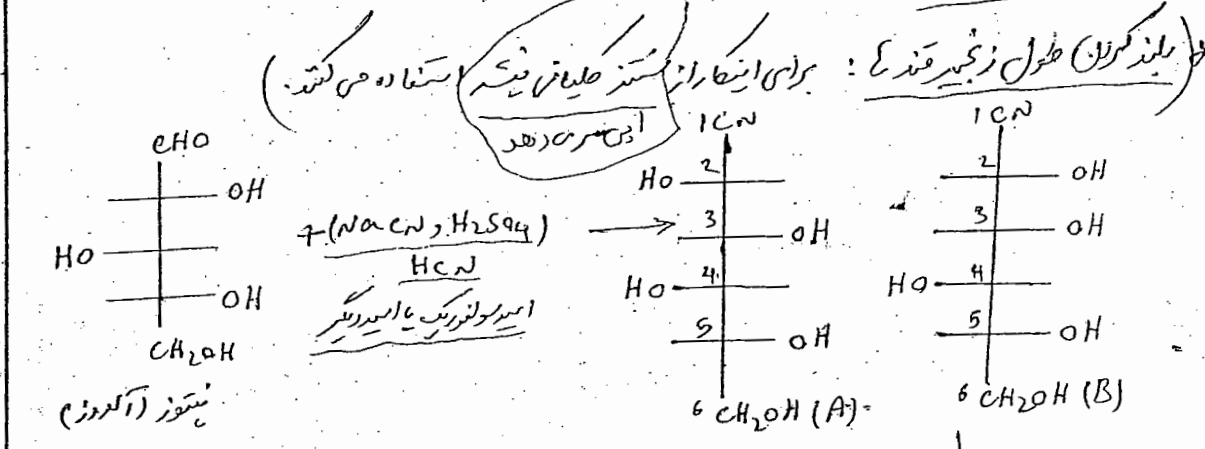 بلند کردن طول زنجیر قند ها : برای اینکار از سنتز کلیانی فیشر استفاده می کنند.)
CHO
OH
HO
OH
CH2OH
+(NaCN, H2SO4)
HCN
اسید سولفوریک یا اسید دیگر
1CN
HO 2
3 OH
HO 4
5 OH
6 CH2OH (A)
1CN
2 OH
3 OH
HO 4
5 OH
6 CH2OH (B)
پنتوز (آلدوز)